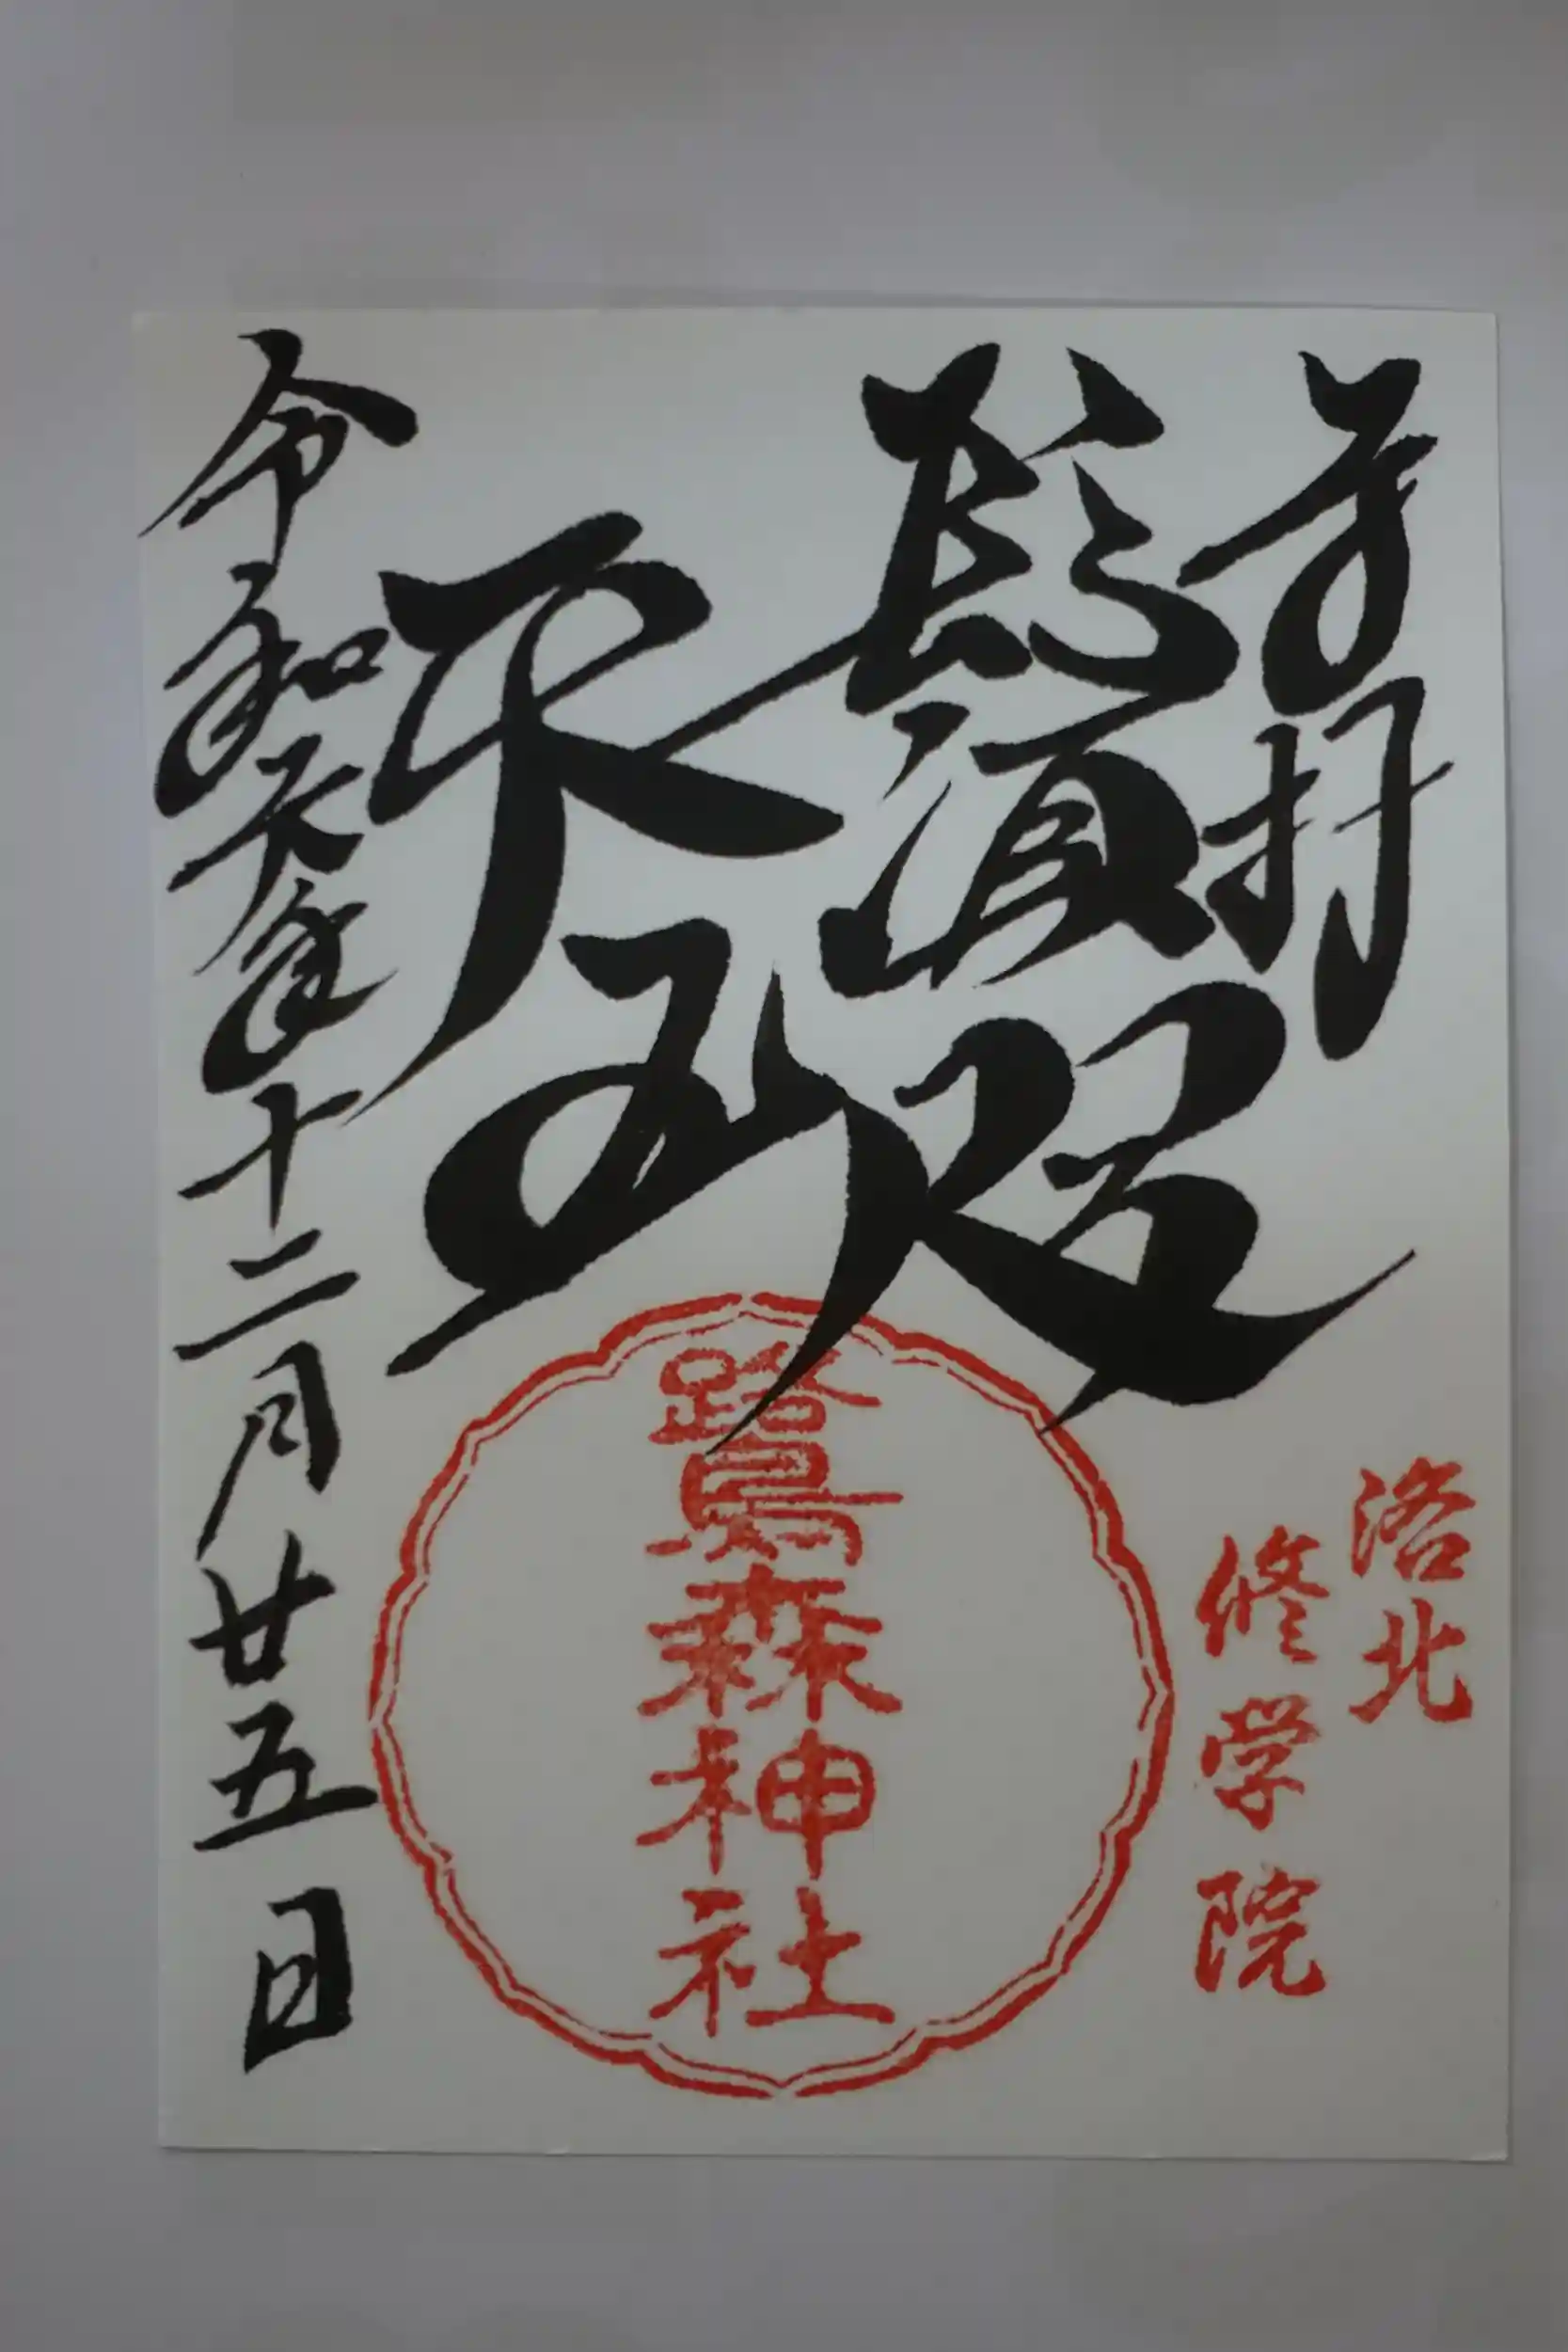 奉拝
鬚咫
天王
令和六年十二月廿五日
洛北
修学院
鷺森神社